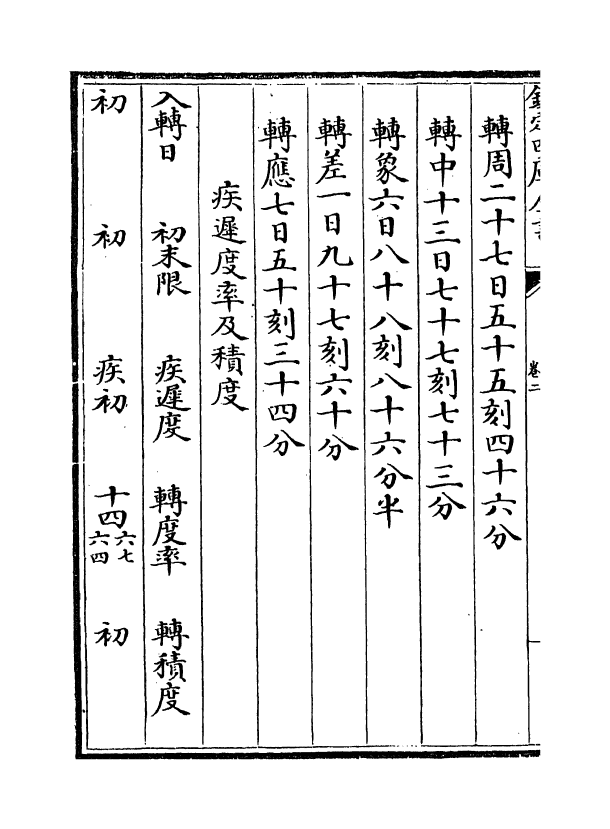 欽定四庫全書
卷二
轉周二十七日五十五刻四十六分
轉中十三日七十七刻七十三分
轉象六日八十八刻八十六分半
轉差一日九十七刻六十分
轉應七日五十刻三十四分
疾遲度率及積度
入轉日 初末限 疾遲度 轉度率 轉積度
初 初 疾初 十四六七六四 初